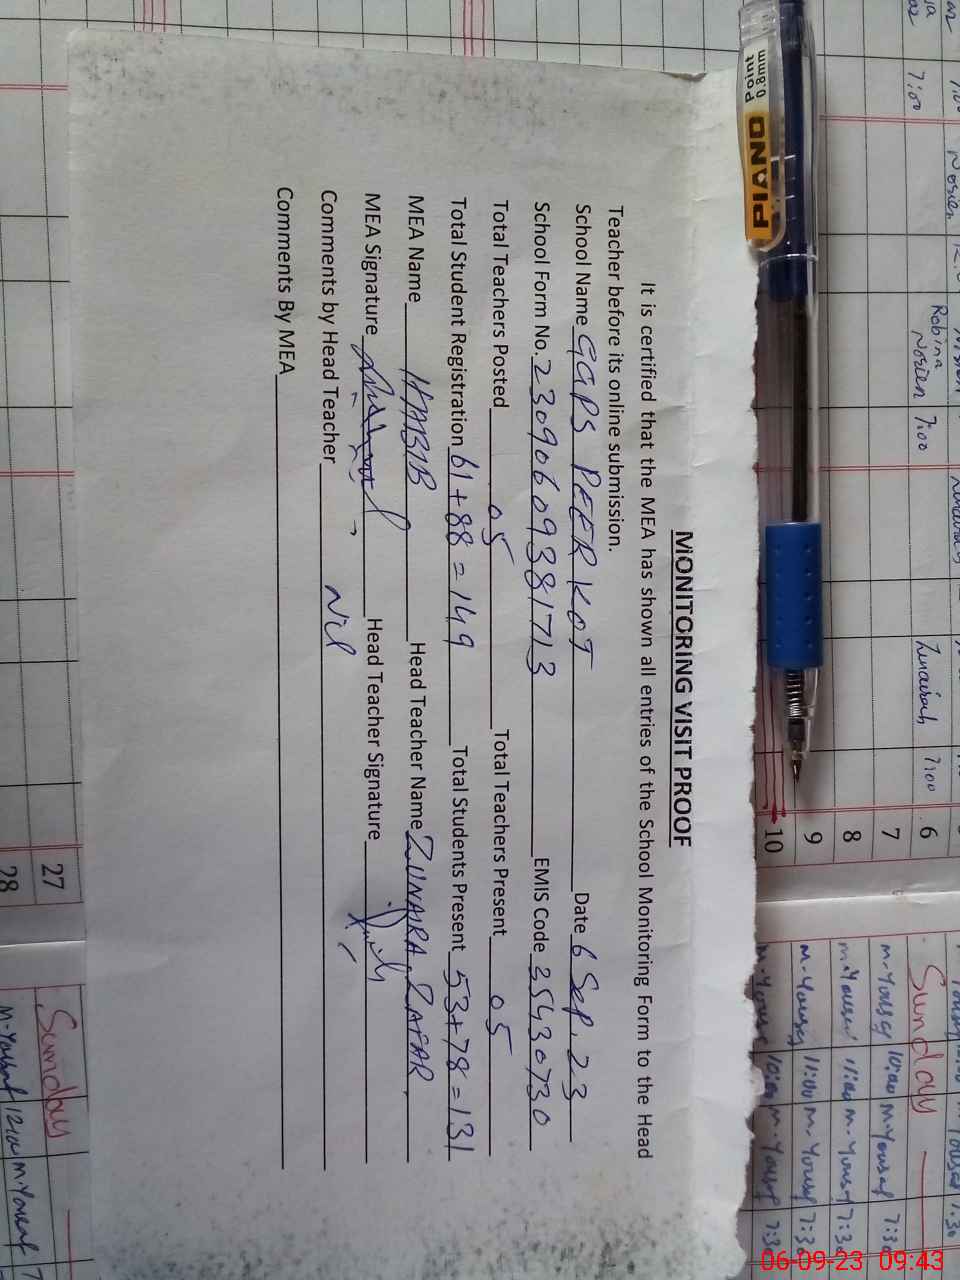 MONITORING VISIT PROOF
It is certified that the MEA has shown all entries of the School Monitoring Form to the Head
Teacher before its online submission.
School Name GGPS PEER KOT Date 6 Sep. 23
School Form No. 23090609381713 EMIS Code 35430730
Total Teachers Posted 05 Total Teachers Present 05
Total Student Registration 61+88=149 Total Students Present 53+78=131
MEA Name HABIB Head Teacher Name ZUNAIRA ZAFAR
MEA Signature Head Teacher Signature
Comments by Head Teacher Nil
Comments By MEA
PIANO
Point
0.8mm
7:00
Robina
Nosien 7:00
Zunairah 7:00
6
7
8
9
10
27
28
Sunday
M-Yousaf 10:00 M-Yousaf 7:3
M-Yousaf 11:00 M-Yousaf 7:3
M-Yousaf 11:00 M-Yousaf 7:3
M-Yousaf 10:00 M-Yousaf 7:3
Sunday
M-Yousaf 12:00 M-Yousaf 7
06-09-23 09:43